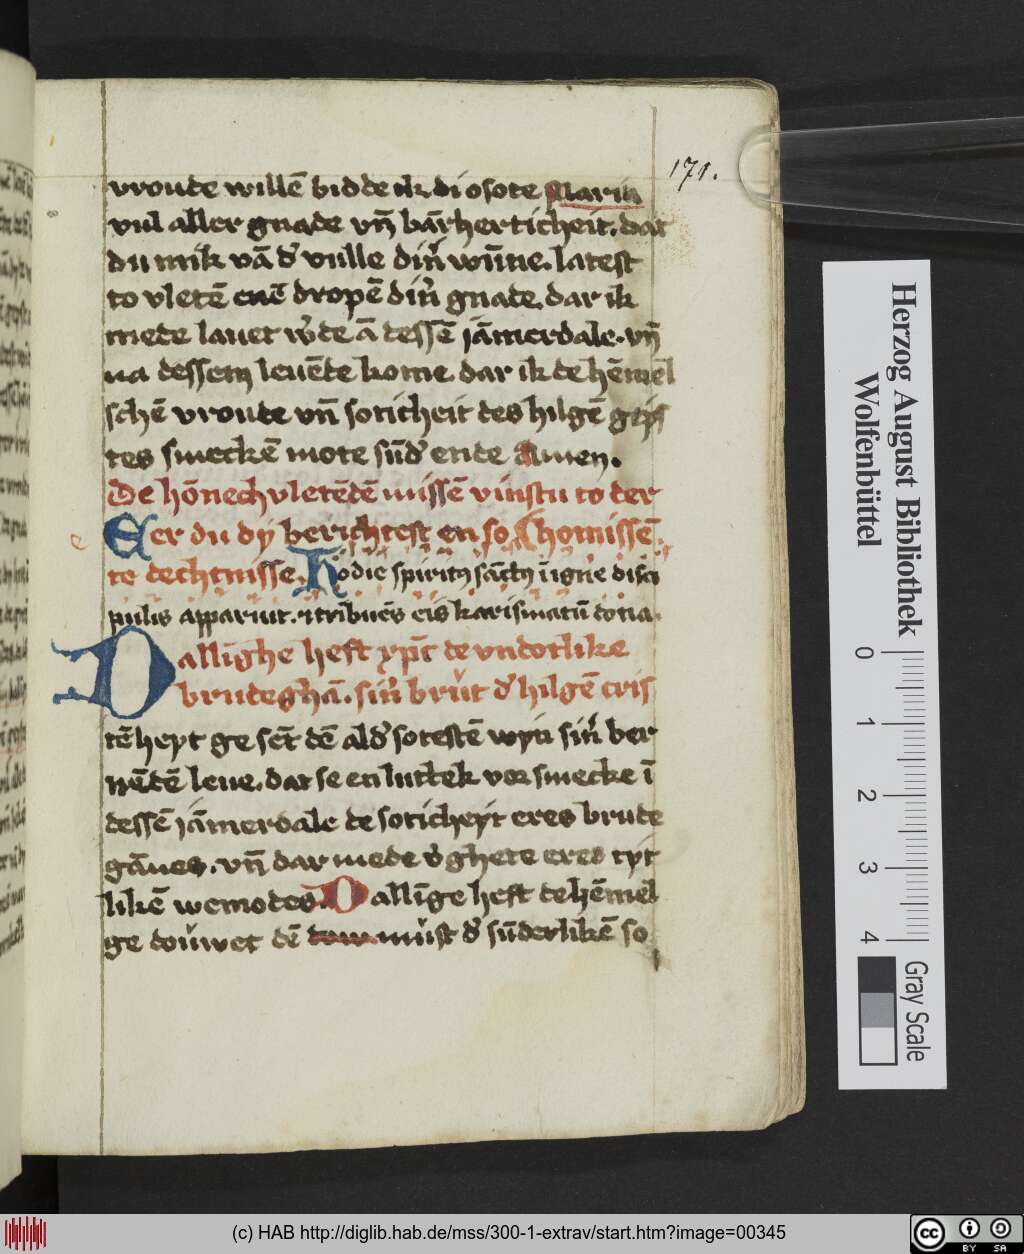 171.
vroude willē bidde ik di o sote Maria
vul aller gnade vn̄ bārherticheit. dat
du mik vā d' vulle din' wūne. latest
to vletē enē dropē din' gnade. dar ik
mede lauet w'de ā dessē jāmerdale. vn̄
na dessem leuēde kome. dar ik de hēmel
schē vroude vn̄ soticheit des hilgē geis
tes smeckē mote sūd' ende Amen.
De hōnech vletēdē missē vinstu to der
Eer du dy berichtest en so homissē.
te dechtnisse. Hodie spiritus sāctus ī igne disci
pulis apparuit. et tribuēs eis karismatū dona.
Dallīghe heft xp̄c de vndotlike
brudeghā. sin' brut d' hilgē cris
tēheyt ge sēt dē ald' sotestē wyn sin' ber
nēdē leue. dat se en luttek vor smecke ī
dessē jāmerdale de soticheyt eres brude
gāmes. vn̄ dar mede v'ghete eres tyt
likē wemodes. Dallīge heft de hēmel
ge douwet dē must d' sūderlikē so
Herzog August Bibliothek
Wolfenbüttel
0 1 2 3 4
Gray Scale
(c) HAB http://diglib.hab.de/mss/300-1-extrav/start.htm?image=00345
cc BY SA